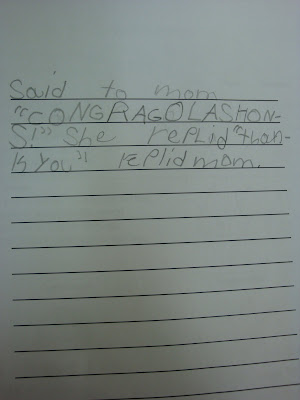 Said to mom
"CONGRAGOLASHON-
S!" She replid "than-
k you"! replid mom.